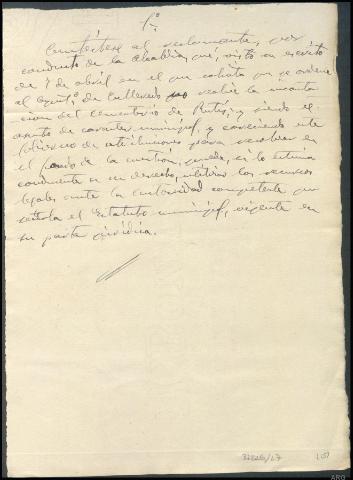 1º
Contéstese al reclamante, por
conducto de la Alcaldía, que, visto su escrito
de 7 de abril en el que solicita que se ordene
al Aynt.º de Culleredo realice la incauta
ción del cementerio de Rutis, y siendo el
asunto de caracter municipal, y careciendo este
Gobierno de atribuciones para resolver en
el fondo de la cuestion, puede, si lo estima
conducente a su derecho, utilizar los recursos
legales ante la autoridad competente que
señala el Estatuto municipal, vigente en
su parte jurídica.
32826/27
(5)
ARG